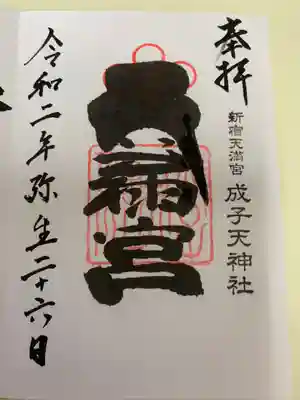 奉拝
新宿天満宮
成子天神社
天満宮
令和二年弥生二十六日